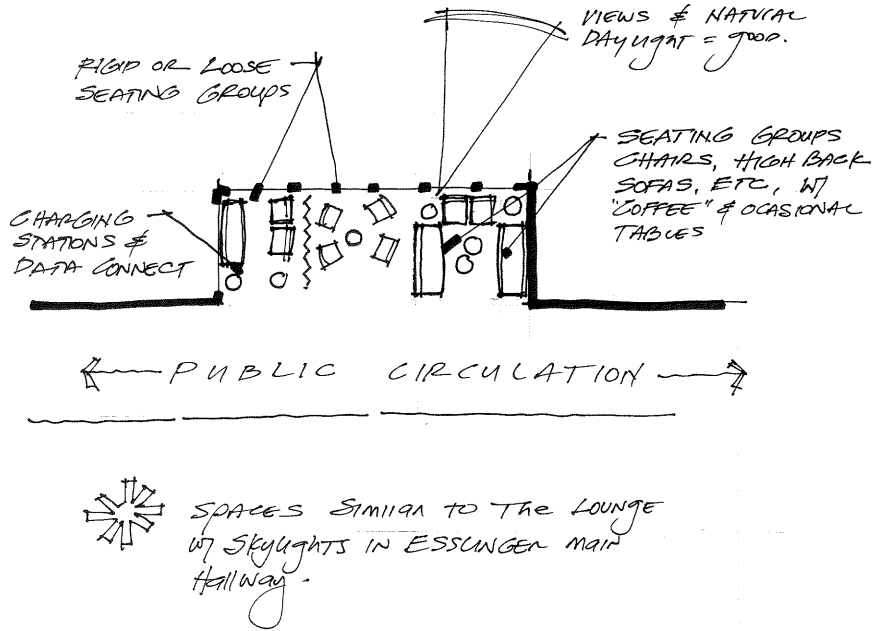 VIEWS & NATURAL
DAYLIGHT = good.
RIGID OR LOOSE
SEATING GROUPS
SEATING GROUPS
CHAIRS, HIGH BACK
SOFAS, ETC, W/
"COFFEE" & OCASIONAL
TABLES
CHARGING
STATIONS &
DATA CONNECT
PUBLIC CIRCULATION
SPACES SIMILAR TO THE LOUNGE
W/ SKYLIGHTS IN ESSLINGER MAIN
HALLWAY.